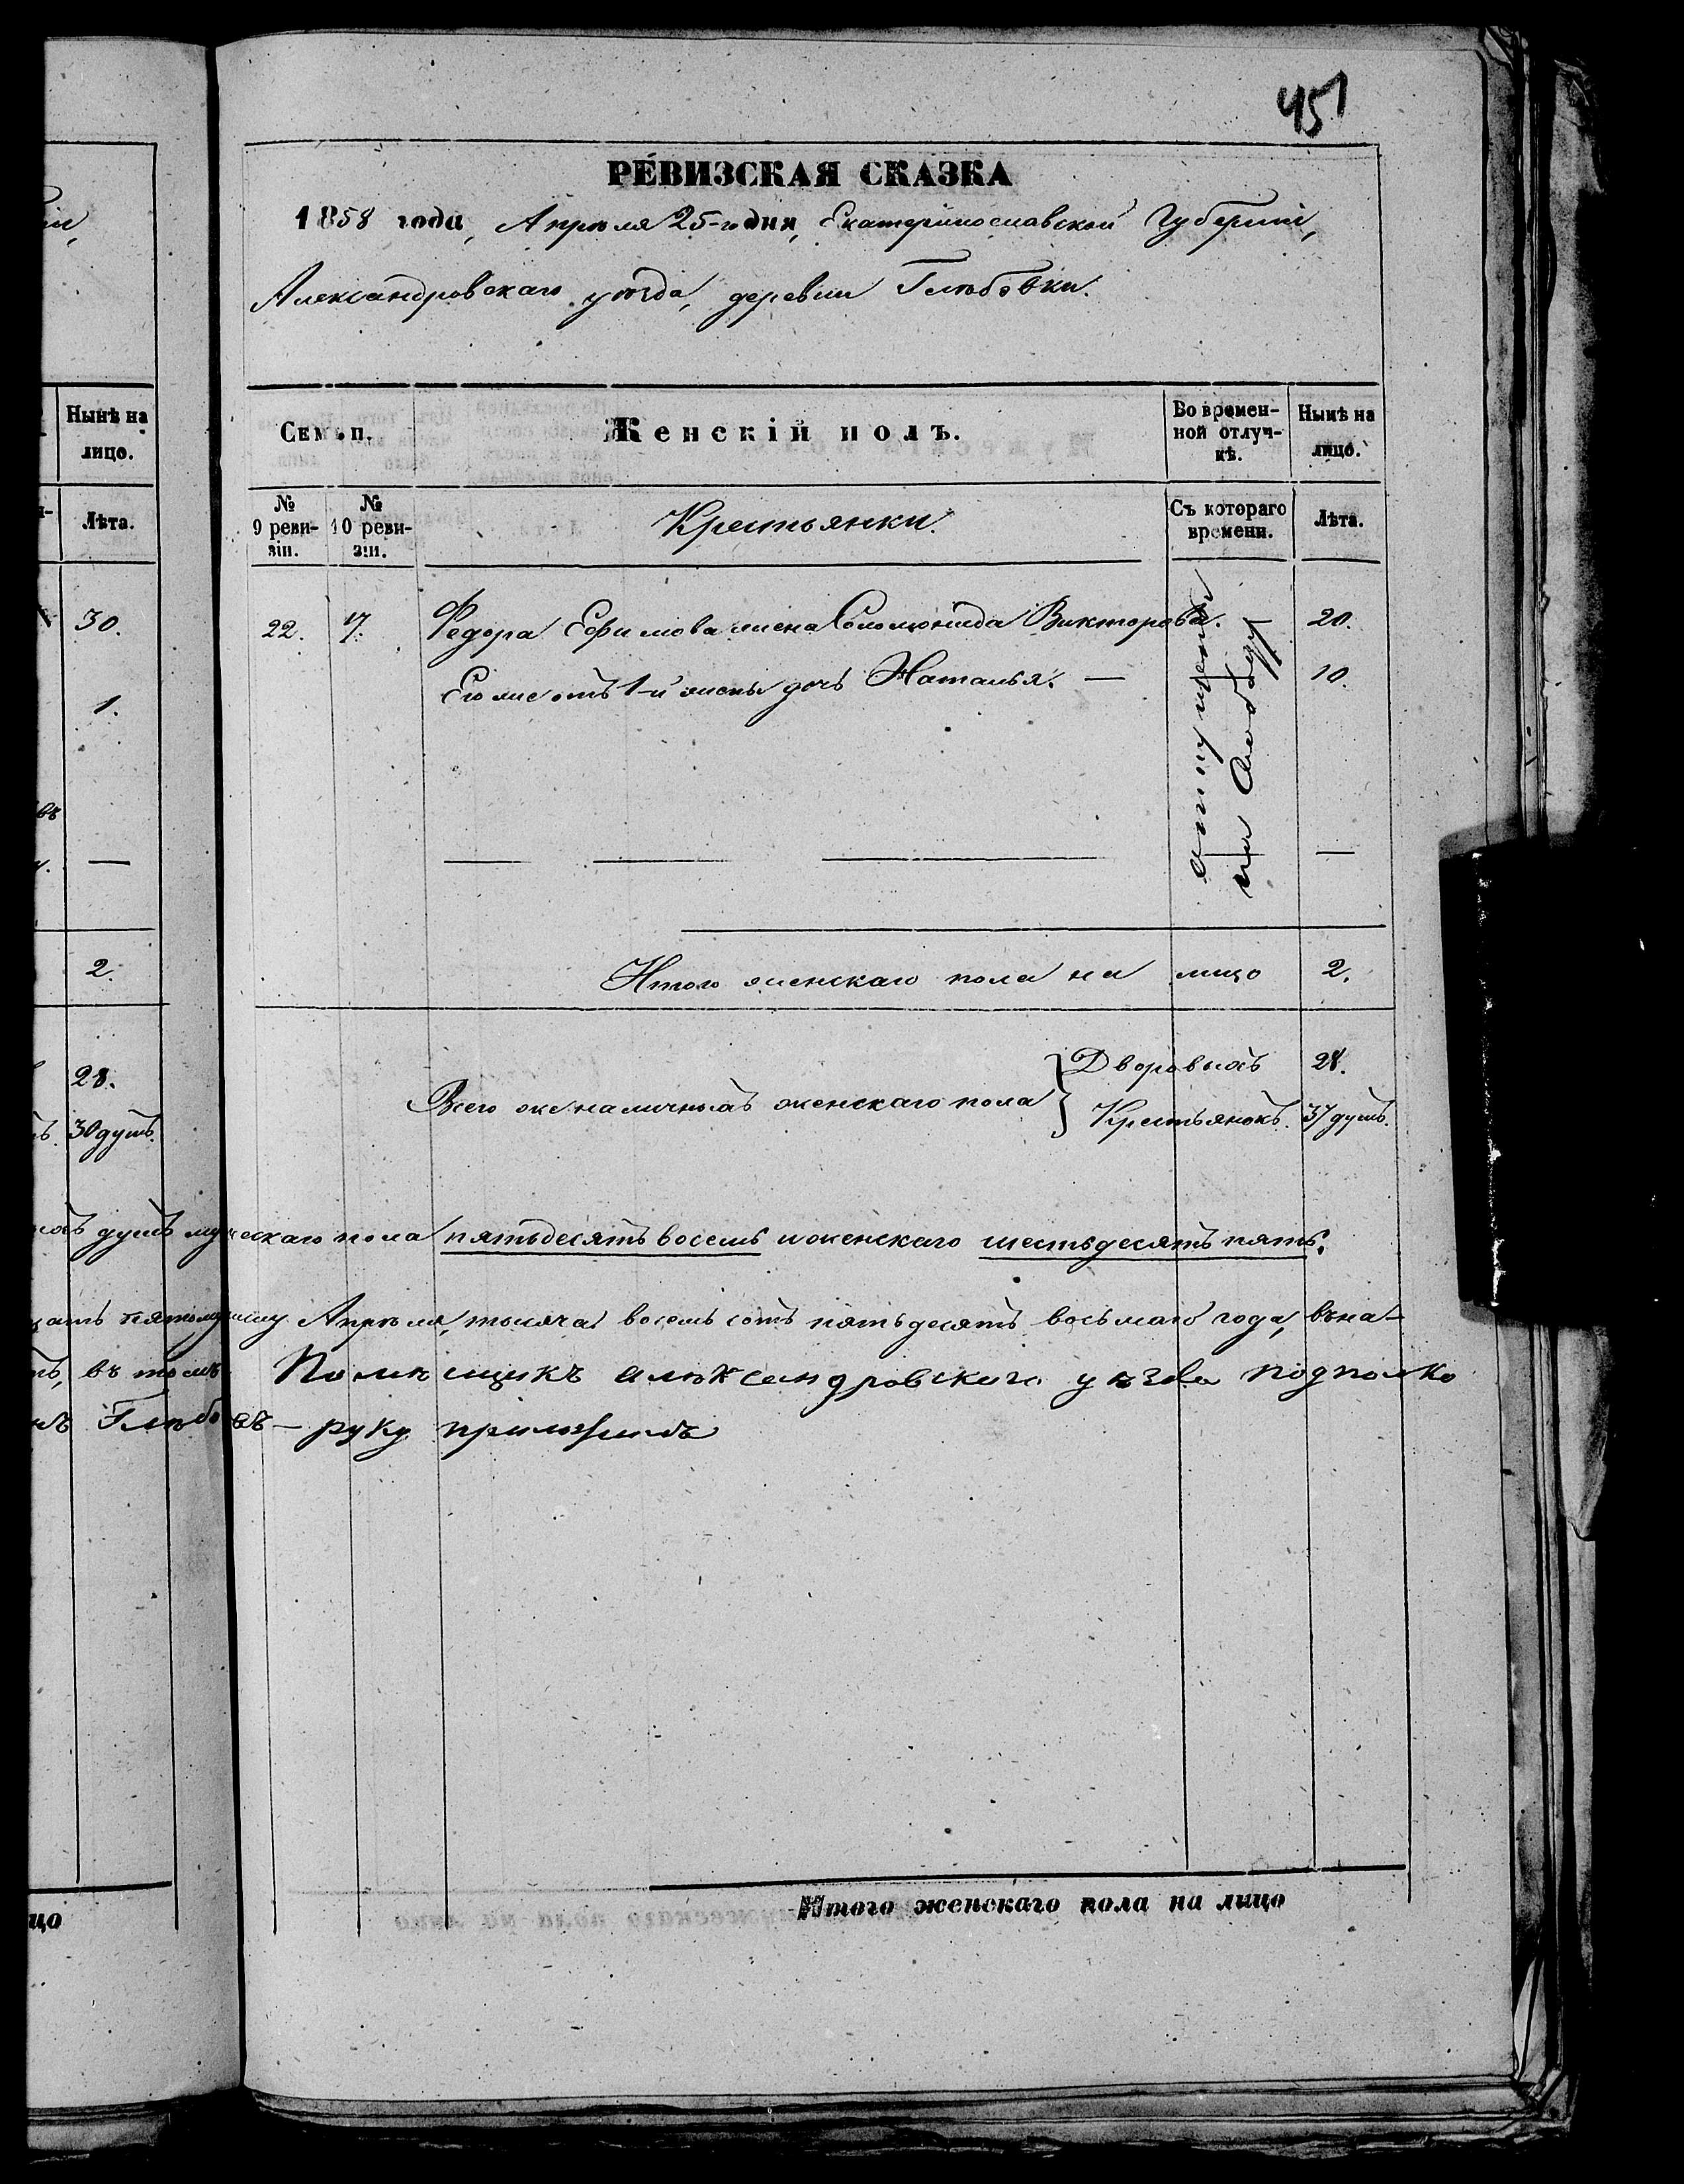 451
РЕ́ВИЗСКАЯ СКАЗКА
1858 года, Апрѣля 25-го дня, Екатеринославской Губерніи,
Александровскаго уѣзда, деревни Глѣбовки.
Нынѣ на
лицо.
Лѣта.
30.
1.
въ
—
2.
28.
30 душъ.
цо
Семьи.
Женскій полъ.
Во времен-
ной отлуч-
кѣ.
Нынѣ на
лицо.
№
9 реви-
зіи.
№
10 реви-
зіи.
Крестьянки.
Съ котораго
времени.
Лѣта.
22. 7. Федора Ефимова жена Соломонида Викторова. 20.
Его же отъ 1-й жены дочь Наталья. — 10.
отпущены
на свободу
Итого женскаго пола на лицо 2.
Всего же наличныхъ женскаго пола } Дворовыхъ 28.
Крестьянокъ. 37 душъ.
душъ мужескаго пола пятьдесятъ восемь и женскаго шестьдесятъ пять.
Апрѣля, тысяча восемь сотъ пятьдесятъ восьмаго года, въ на-
въ томъ Помѣщикъ александровскаго уѣзда подполко
Глѣбовъ — руку приложилъ
Итого женскаго пола на лицо